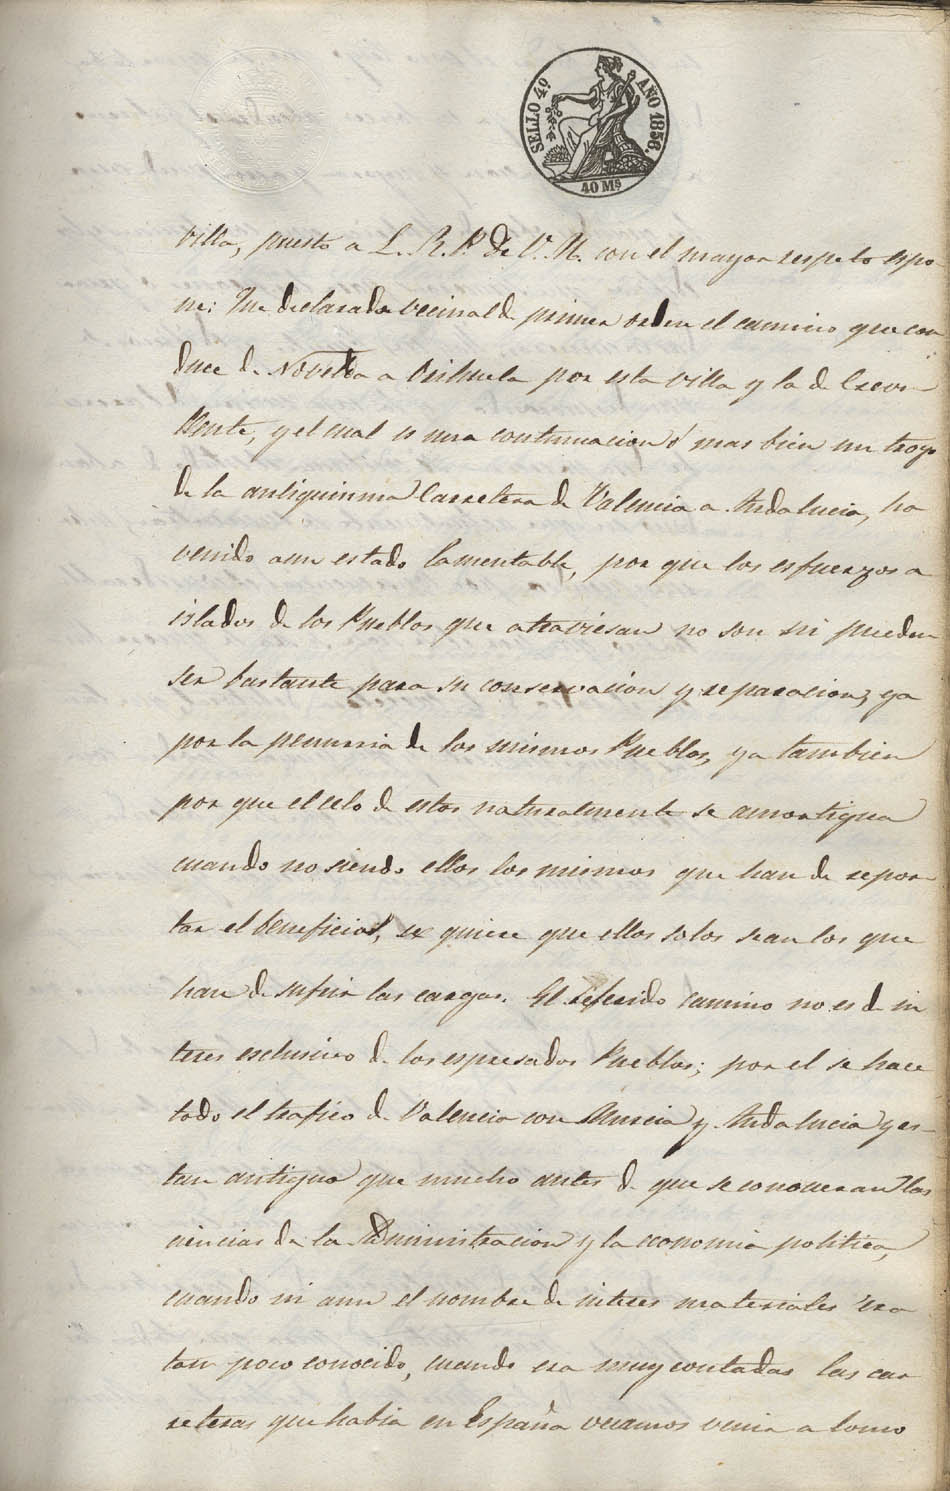 SELLO 4º. AÑO 1856.
40 Ms
villa, puesto a L. R. P. de V. M. con el mayor respeto espo
ne: Fue declarado vecinal de primer orden el camino que con
duce de Novelda a Orihuela por esta villa y la de Crevi
llente, y el cual es una continuacion ó mas bien un trozo
de la antiquisima Carretera de Valencia a Andalucia, ha
venido a un estado lamentable, por que los esfuerzos a
islados de los Pueblos que atraviesan no son ni pueden
ser bastante para su conservacion y reparacion, ya
por la penuria de los mismos Pueblos, ya tambien
por que el celo de estos naturalmente se amortigua
cuando no siendo ellos los mismos que han de repor
tar el beneficio, se quiere que ellos solos sean los que
han de sufrir las cargas. El referido camino no es de in
teres esclusivo de los espresados Pueblos; por el se hace
todo el trafico de Valencia con Murcia y Andalucia y es
tan antiguo que mucho antes de que se conocieran las
ciencias de la Administracion y la economia politica,
cuando ni aun el nombre de interes materiales era
tan poco conocido, cuando era muy contadas las car
reteras que habia en España veiamos venir a lomo